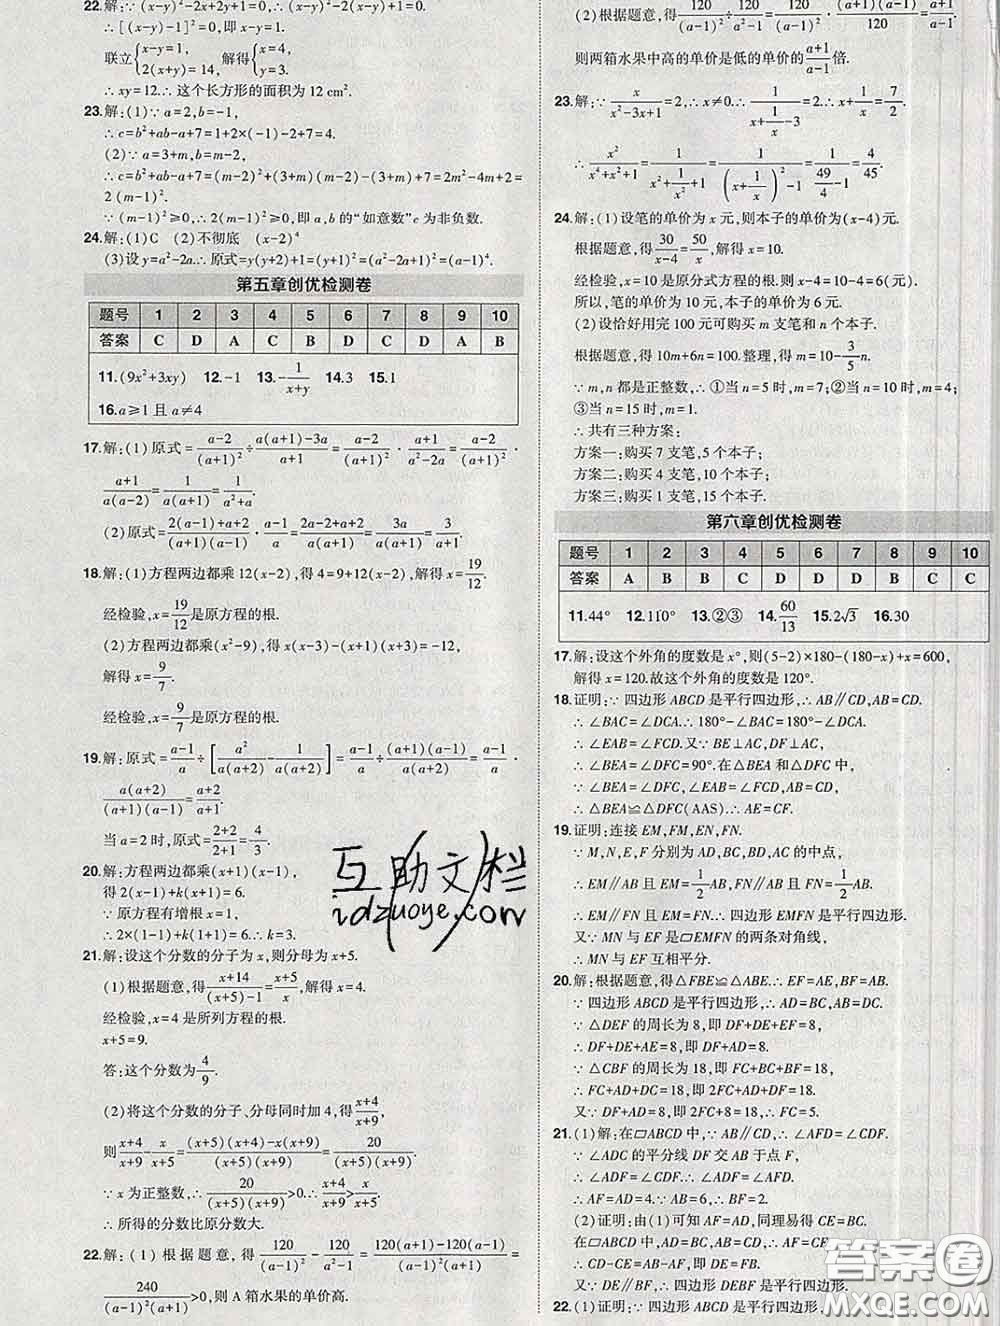 22.解:∵(x-y)²-2x+2y+1=0,∴(x-y)²-2(x-y)+1=0.
∴[(x-y)-1]²=0,即x-y=1.
联立{x-y=1, 2(x+y)=14, 解得{x=4, y=3.
∴xy=12.∴这个长方形的面积为12 cm².
23.解:(1)∵a=2,b=-1,
∴c=b²+ab-a+7=1+2×(-1)-2+7=4.
(2)∵a=3+m,b=m-2,
∴c=b²+ab-a+7=(m-2)²+(3+m)(m-2)-(3+m)+7=2m²-4m+2=
2(m-1)².
∵(m-1)²≥0,∴2(m-1)²≥0,即a,b的“如意数”c为非负数.
24.解:(1)C (2)不彻底 (x-2)⁴
(3)设y=a²-2a∴原式=y(y+2)+1=(y+1)²=(a²-2a+1)²=(a-1)⁴.
第五章创优检测卷
题号 1 2 3 4 5 6 7 8 9 10
答案 C D A C B C D D A B
11.(9x²+3xy) 12.-1 13.-1/(x+y) 14.3 15.1
16.a≥1且a≠4
17.解:(1)原式=(a-2)/(a+1)²÷(a(a+1)-3a)/(a+1)=(a-2)/(a+1)²·(a+1)/(a²-2a)=(a-2)/(a+1)²·
(a+1)/(a(a-2))=1/(a(a+1))=1/(a²+a).
(2)原式=(2(a-1)+a+2)/((a+1)(a-1))·(a-1)/a=3a/((a+1)(a-1))·(a-1)/a=3/(a+1).
18.解:(1)方程两边都乘12(x-2),得4=9+12(x-2),解得x=19/12.
经检验,x=19/12是原方程的根.
(2)方程两边都乘(x²-9),得x(x-3)-(x+3)(x+3)=-12,
解得x=9/7.
经检验,x=9/7是原方程的根.
19.解:原式=(a-1)/a÷[a²/(a(a+2))-1/(a(a+2))]=(a-1)/a÷((a+1)(a-1))/(a(a+2))=(a-1)/a·
(a(a+2))/((a+1)(a-1))=(a+2)/(a+1).
当a=2时,原式=(2+2)/(2+1)=4/3.
20.解:方程两边都乘(x+1)(x-1),
得2(x-1)+k(x+1)=6.
∵原方程有增根x=1,
∴2×(1-1)+k(1+1)=6.∴k=3.
21.解:设这个分数的分子为x,则分母为x+5.
(1)根据题意,得(x+14)/((x+5)-1)=(x+5)/x,解得x=4.
经检验,x=4是所列方程的根.
x+5=9.
答:这个分数为4/9.
(2)将这个分数的分子、分母同时加4,得(x+4)/(x+9).
则(x+4)/(x+9)-x/(x+5)=((x+5)(x+4)-x(x+9))/((x+5)(x+9))=20/((x+5)(x+9)).
∵x为正整数,∴20/((x+5)(x+9))>0.∴(x+4)/(x+9)>x/(x+5).
∴所得的分数比原分数大.
22.解:(1)根据题意,得120/(a-1)²-120/(a²-1)=(120(a+1)-120(a-1))/((a-1)²(a+1))=
240/((a-1)²(a+1))>0,则A箱水果的单价高.
(2)根据题意,得120/(a-1)²÷120/(a²-1)=120/(a-1)²·((a+1)(a-1))/120=(a+1)/(a-1),
则两箱水果中高的单价是低的单价的(a+1)/(a-1)倍.
23.解:∵x/(x²-3x+1)=2,∴x≠0.∴1/(x+1/x-3)=2.∴x+1/x=7/2.
∴x²/(x⁴+x²+1)=1/(x²+1/x²+1)=1/((x+1/x)²-1)=1/(49/4-1)=4/45.
24.解:(1)设笔的单价为x元,则本子的单价为(x-4)元.
根据题意,得30/(x-4)=50/x,解得x=10.
经检验,x=10是原分式方程的根.则x-4=10-4=6(元).
所以,笔的单价为10元,本子的单价为6元.
(2)设恰好用完100元可购买m支笔和n个本子.
根据题意,得10m+6n=100.整理,得m=10-3/5n.
∵m,n都是正整数,∴①当n=5时,m=7;②当n=10时,m=4;
③当n=15时,m=1.
∴共有三种方案:
方案一:购买7支笔,5个本子;
方案二:购买4支笔,10个本子;
方案三:购买1支笔,15个本子.
第六章创优检测卷
题号 1 2 3 4 5 6 7 8 9 10
答案 A B B C D D D B C C
11.44° 12.110° 13.②③ 14.60/13 15.2√3 16.30
17.解:设这个外角的度数是x°,则(5-2)×180-(180-x)+x=600,
解得x=120.故这个外角的度数是120°.
18.证明:∵四边形ABCD是平行四边形,∴AB∥CD,AB=CD.
∴∠BAC=∠DCA.∴180°-∠BAC=180°-∠DCA.
∴∠EAB=∠FCD.又∵BE⊥AC,DF⊥AC,
∴∠BEA=∠DFC=90°.在△BEA和△DFC中,
∵∠BEA=∠DFC,∠EAB=∠FCD,AB=CD,
∴△BEA≌△DFC(AAS).∴AE=CF.
19.证明:连接EM,FM,EN,FN.
∵M,N,E,F分别为AD,BC,BD,AC的中点,
∴EM∥AB且EM=1/2AB,FN∥AB且FN=1/2AB.
∴EM∥FN且EM=FN.∴四边形EMFN是平行四边形.
又∵MN与EF是▱EMFN的两条对角线,
∴MN与EF互相平分.
20.解:根据题意,得△FBE≌△ABE.∴EF=AE,BF=AB.
∵四边形ABCD是平行四边形,∴AD=BC,AB=DC.
∵△DEF的周长为8,即DF+DE+EF=8,
∴DF+DE+AE=8,即DF+AD=8.
∵△CBF的周长为18,即FC+BC+BF=18,
∴FC+AD+DC=18,即2FC+AD+DF=18.
又∵DF+AD=8,∴2FC+8=18.∴FC=5.
21.(1)解:在▱ABCD中,∵AB∥CD,∴∠AFD=∠CDF.
∵∠ADC的平分线DF交AB于点F,
∴∠ADF=∠CDF.∴∠ADF=∠AFD.
∴AF=AD=4.又∵AB=6,∴BF=2.
(2)证明:由(1)可知AF=AD,同理易得CE=BC.
在▱ABCD中,∵AD=BC,AB=CD,∴AF=CE.
∴CD-CE=AB-AF,即DE=BF.
又∵DE∥BF,∴四边形DEBF是平行四边形.
22.(1)证明:∵四边形ABCD是平行四边形,
互助文栏
idzuoye.com
答案圈
MXQE.COM